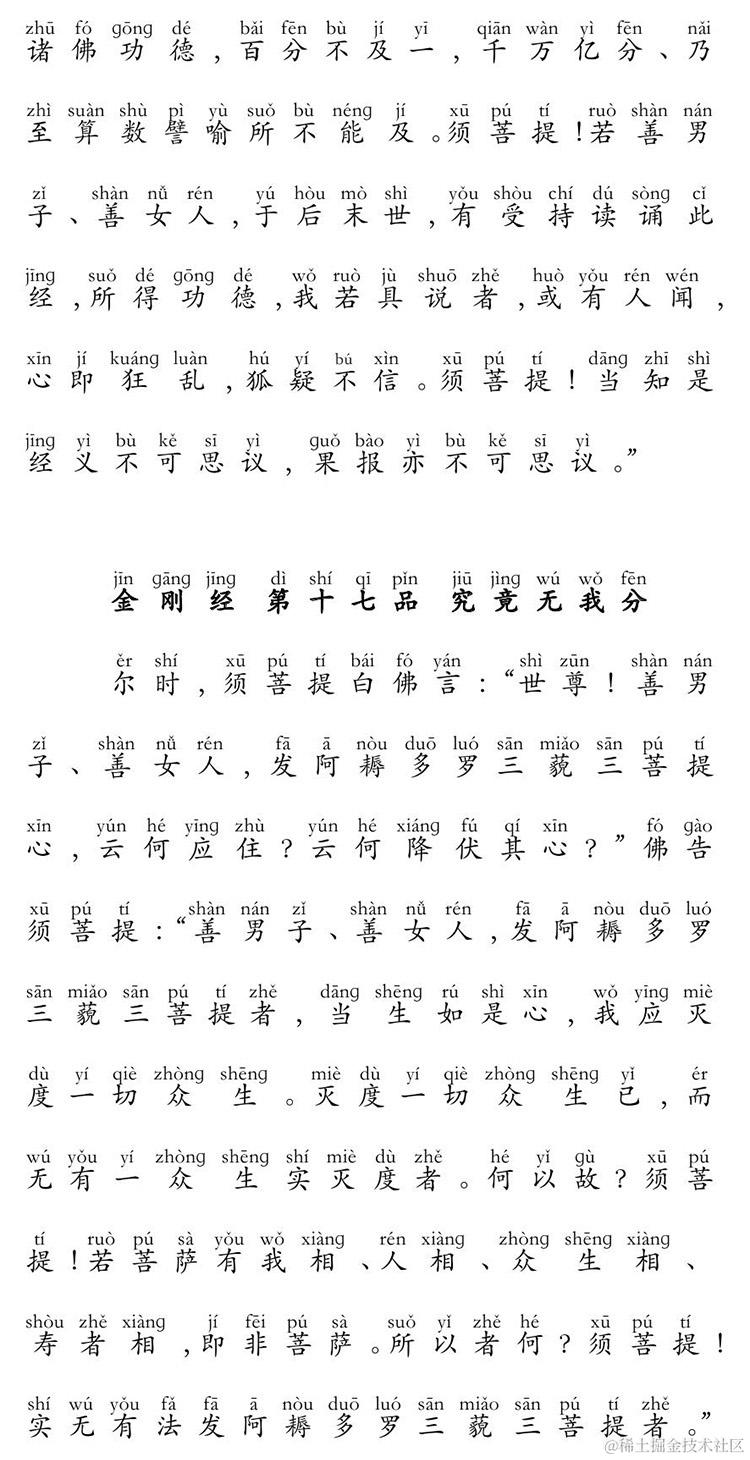 zhū fó gōng dé bǎi fēn bù jí yī qiān wàn yì fēn nǎi
诸佛功德,百分不及一,千万亿分、乃
zhì suàn shù pì yù suǒ bù néng jí xū pú tí ruò shàn nán
至算数譬喻所不能及。须菩提!若善男
zǐ shàn nǚ rén yú hòu mò shì yǒu shòu chí dú sòng cǐ
子、善女人,于后末世,有受持读诵此
jīng suǒ dé gōng dé wǒ ruò jù shuō zhě huò yǒu rén wén
经,所得功德,我若具说者,或有人闻,
xīn jí kuáng luàn hú yí bú xìn xū pú tí dāng zhī shì
心即狂乱,狐疑不信。须菩提!当知是
jīng yì bù kě sī yì guǒ bào yì bù kě sī yì
经义不可思议,果报亦不可思议。”
jīn gāng jīng dì shí qī pǐn jiū jìng wú wǒ fēn
金刚经 第十七品 究竟无我分
ěr shí xū pú tí bái fó yán shì zūn shàn nán
尔时,须菩提白佛言:“世尊!善男
zǐ shàn nǚ rén fā ā nòu duō luó sān miǎo sān pú tí
子、善女人,发阿耨多罗三藐三菩提
xīn yún hé yīng zhù yún hé xiáng fú qí xīn fó gào
心,云何应住?云何降伏其心?”佛告
xū pú tí shàn nán zǐ shàn nǚ rén fā ā nòu duō luó
须菩提:“善男子、善女人,发阿耨多罗
sān miǎo sān pú tí zhě dāng shēng rú shì xīn wǒ yīng miè
三藐三菩提者,当生如是心,我应灭
dù yí qiè zhòng shēng miè dù yí qiè zhòng shēng yǐ ér
度一切众生。灭度一切众生已,而
wú yǒu yí zhòng shēng shí miè dù zhě hé yǐ gù xū pú
无有一众生实灭度者。何以故?须菩
tí ruò pú sà yǒu wǒ xiàng rén xiàng zhòng shēng xiàng
提!若菩萨有我相、人相、众生相、
shòu zhě xiàng jí fēi pú sà suǒ yǐ zhě hé xū pú tí
寿者相,即非菩萨。所以者何?须菩提!
shí wú yǒu fǎ fā ā nòu duō luó sān miǎo sān pú tí zhě
实无有法发阿耨多罗三藐三菩提者。”
@稀土掘金技术社区